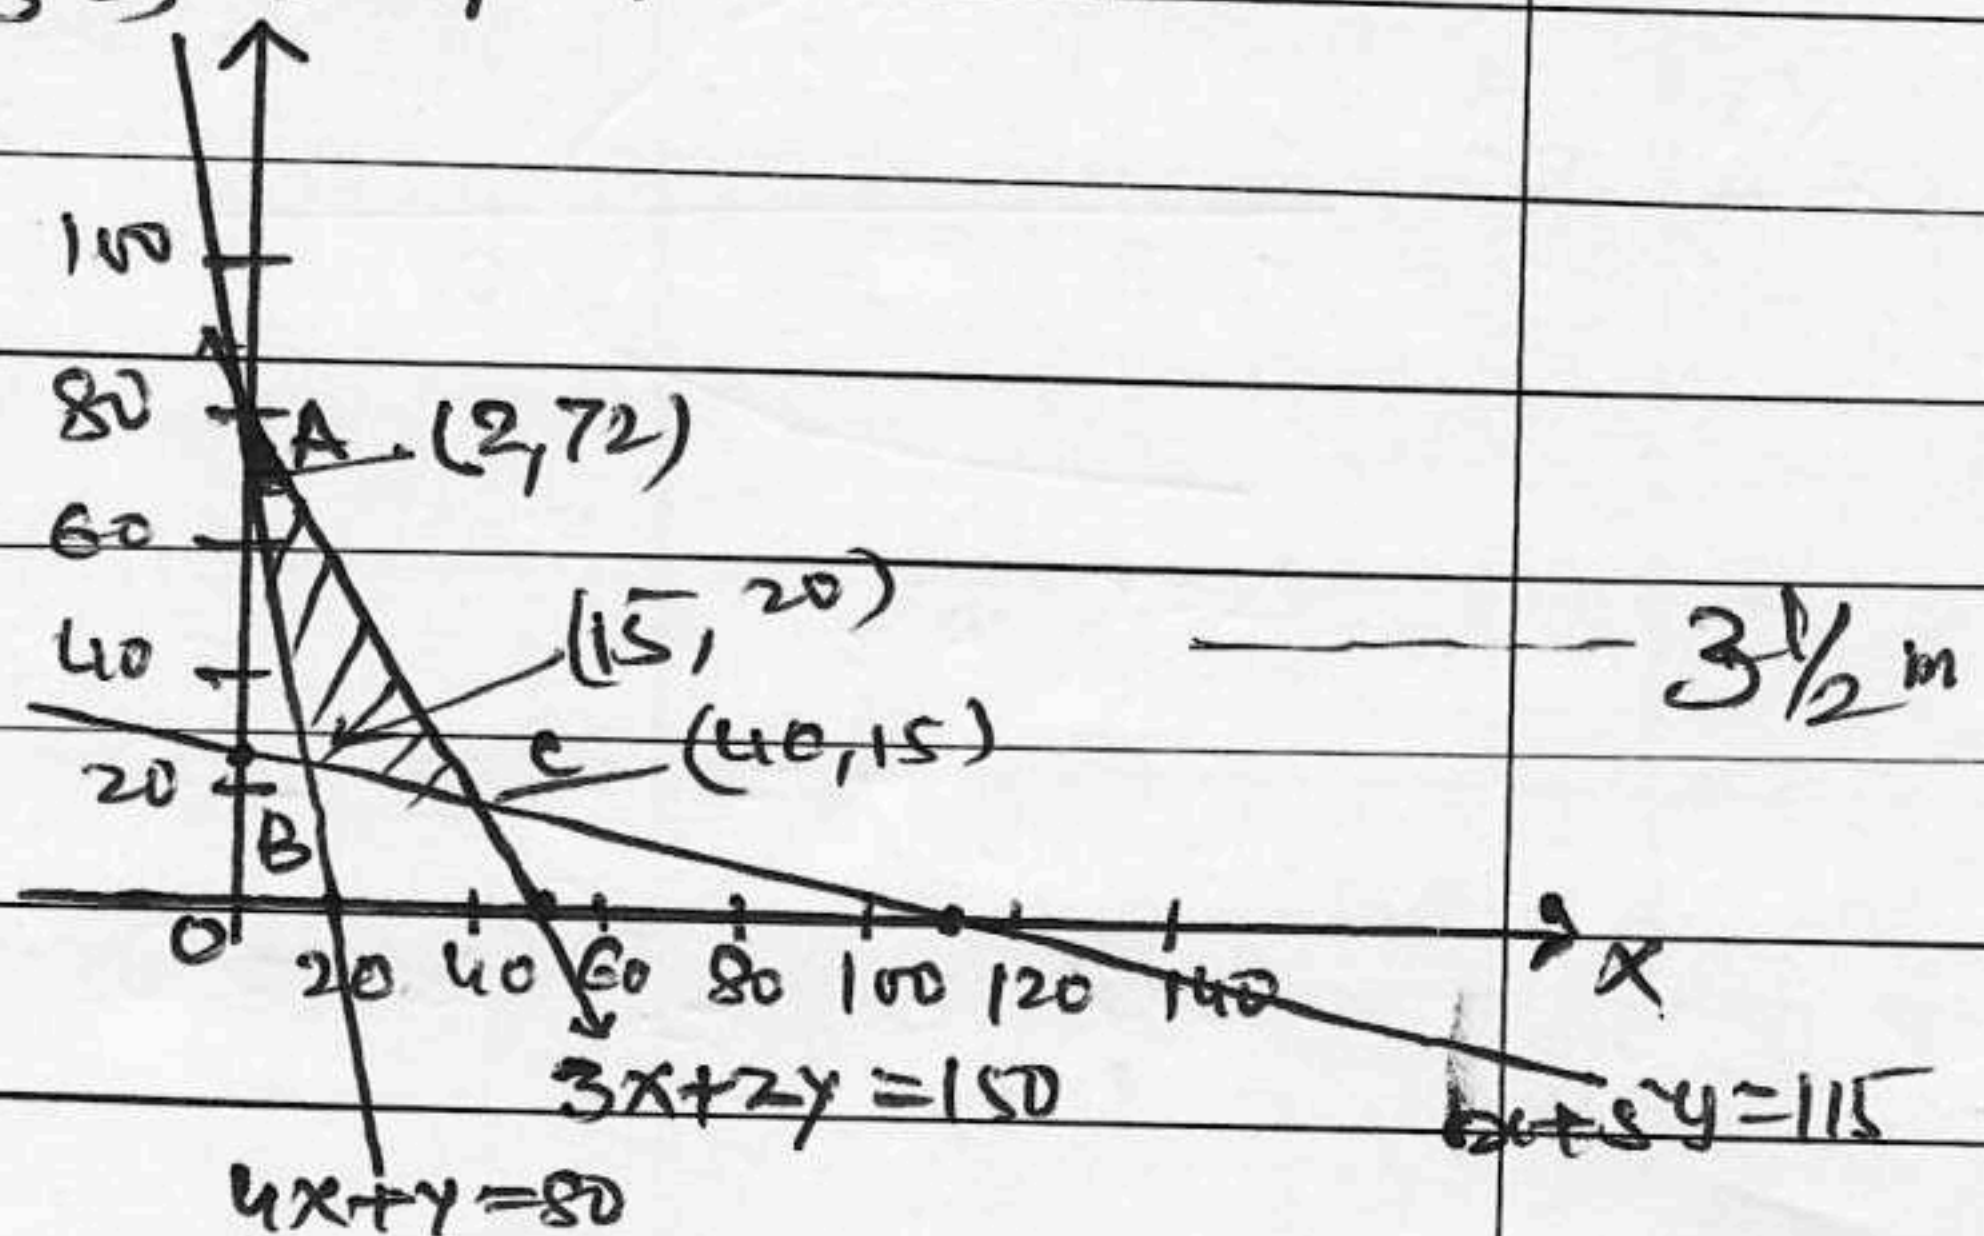 100
80
A (2,72)
60
(15, 20)
3 1/2 m
40
C (40,15)
20
B
O 20 40 60 80 100 120 140 X
3x+2y=150
x+5y=115
4x+y=80